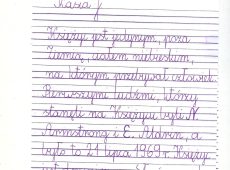 Kasia J
Księżyc jest jedynym, poza
Ziemią, ciałem niebieskim,
na którym przebywał człowiek.
Pierwszymi ludźmi, którzy
stanęli na Księżycu byli N.
Armstrong i E. Aldrin, a
było to 21 lipca 1969 r. Księżyc